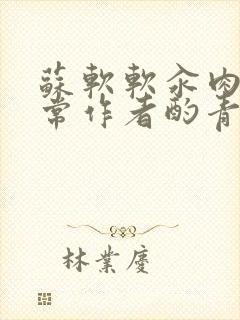 蘇軟軟汆肉
常作者酌青
林業慶